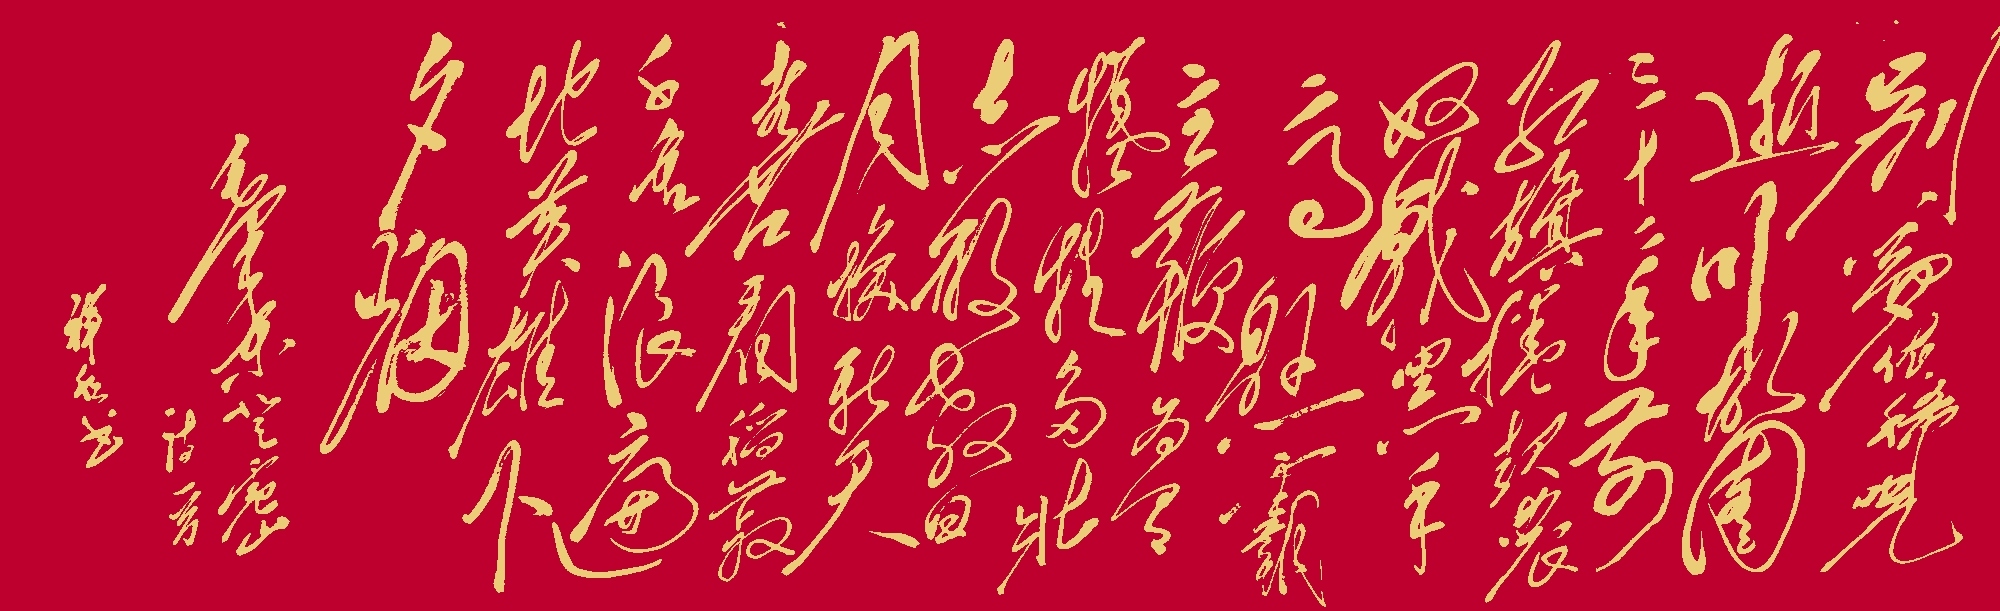 别梦依稀咒
逝川故园
三十二年前
红旗卷起农
奴戟黑手
高悬霸
主鞭为有
牺牲多壮
志敢教日
月换新天
喜看稻菽
千重浪遍
地英雄下
夕烟
毛泽东韶山
诗一首
书